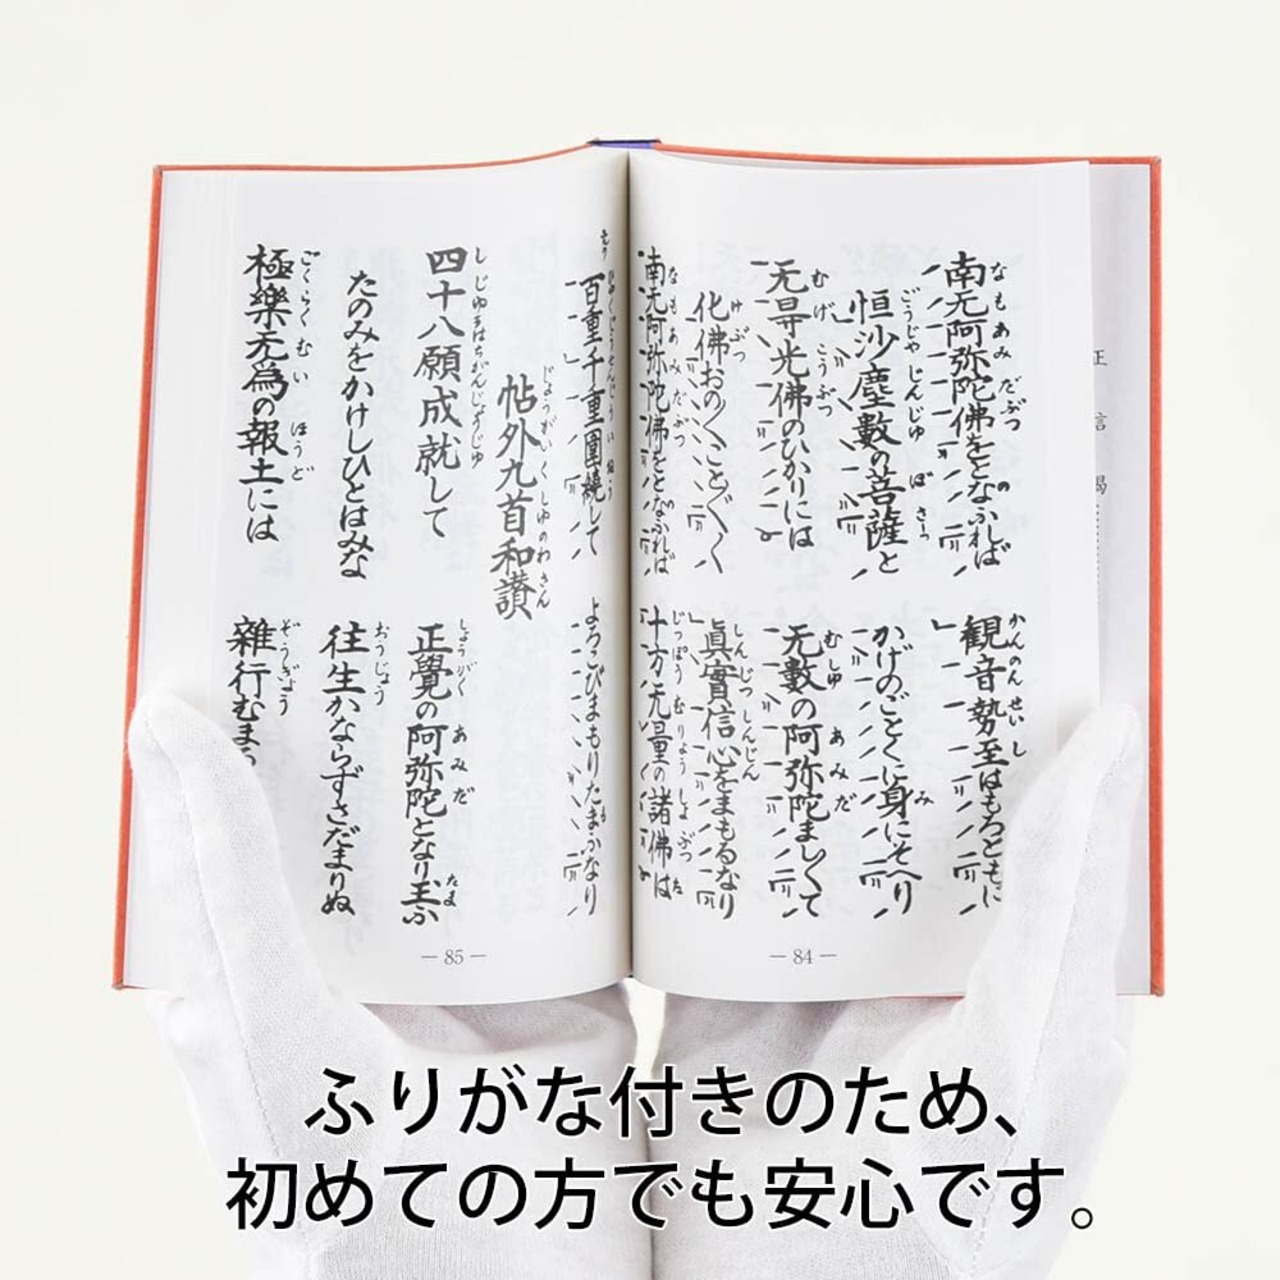 南无阿弥陀佛をとなふれば
観音勢至はもろともに
恒沙塵數の菩薩と
かげのごとくに身にそへり
无㝵光佛のひかりには
无數の阿弥陀ましくて
化佛おの〱こと〲く
眞實信心をまもるなり
南无阿弥陀佛をとなふれば
十方无量の諸佛は
百重千重圍繞して
よろこびまもりたまふなり
帖外九首和讃
四十八願成就して
正覺の阿弥陀となり玉ふ
たのみをかけしひとはみな
往生かならずさだまりぬ
極樂无爲の報土には
雜行むまる
— 84 —
— 85 —
正信偈
ふりがな付きのため、
初めての方でも安心です。